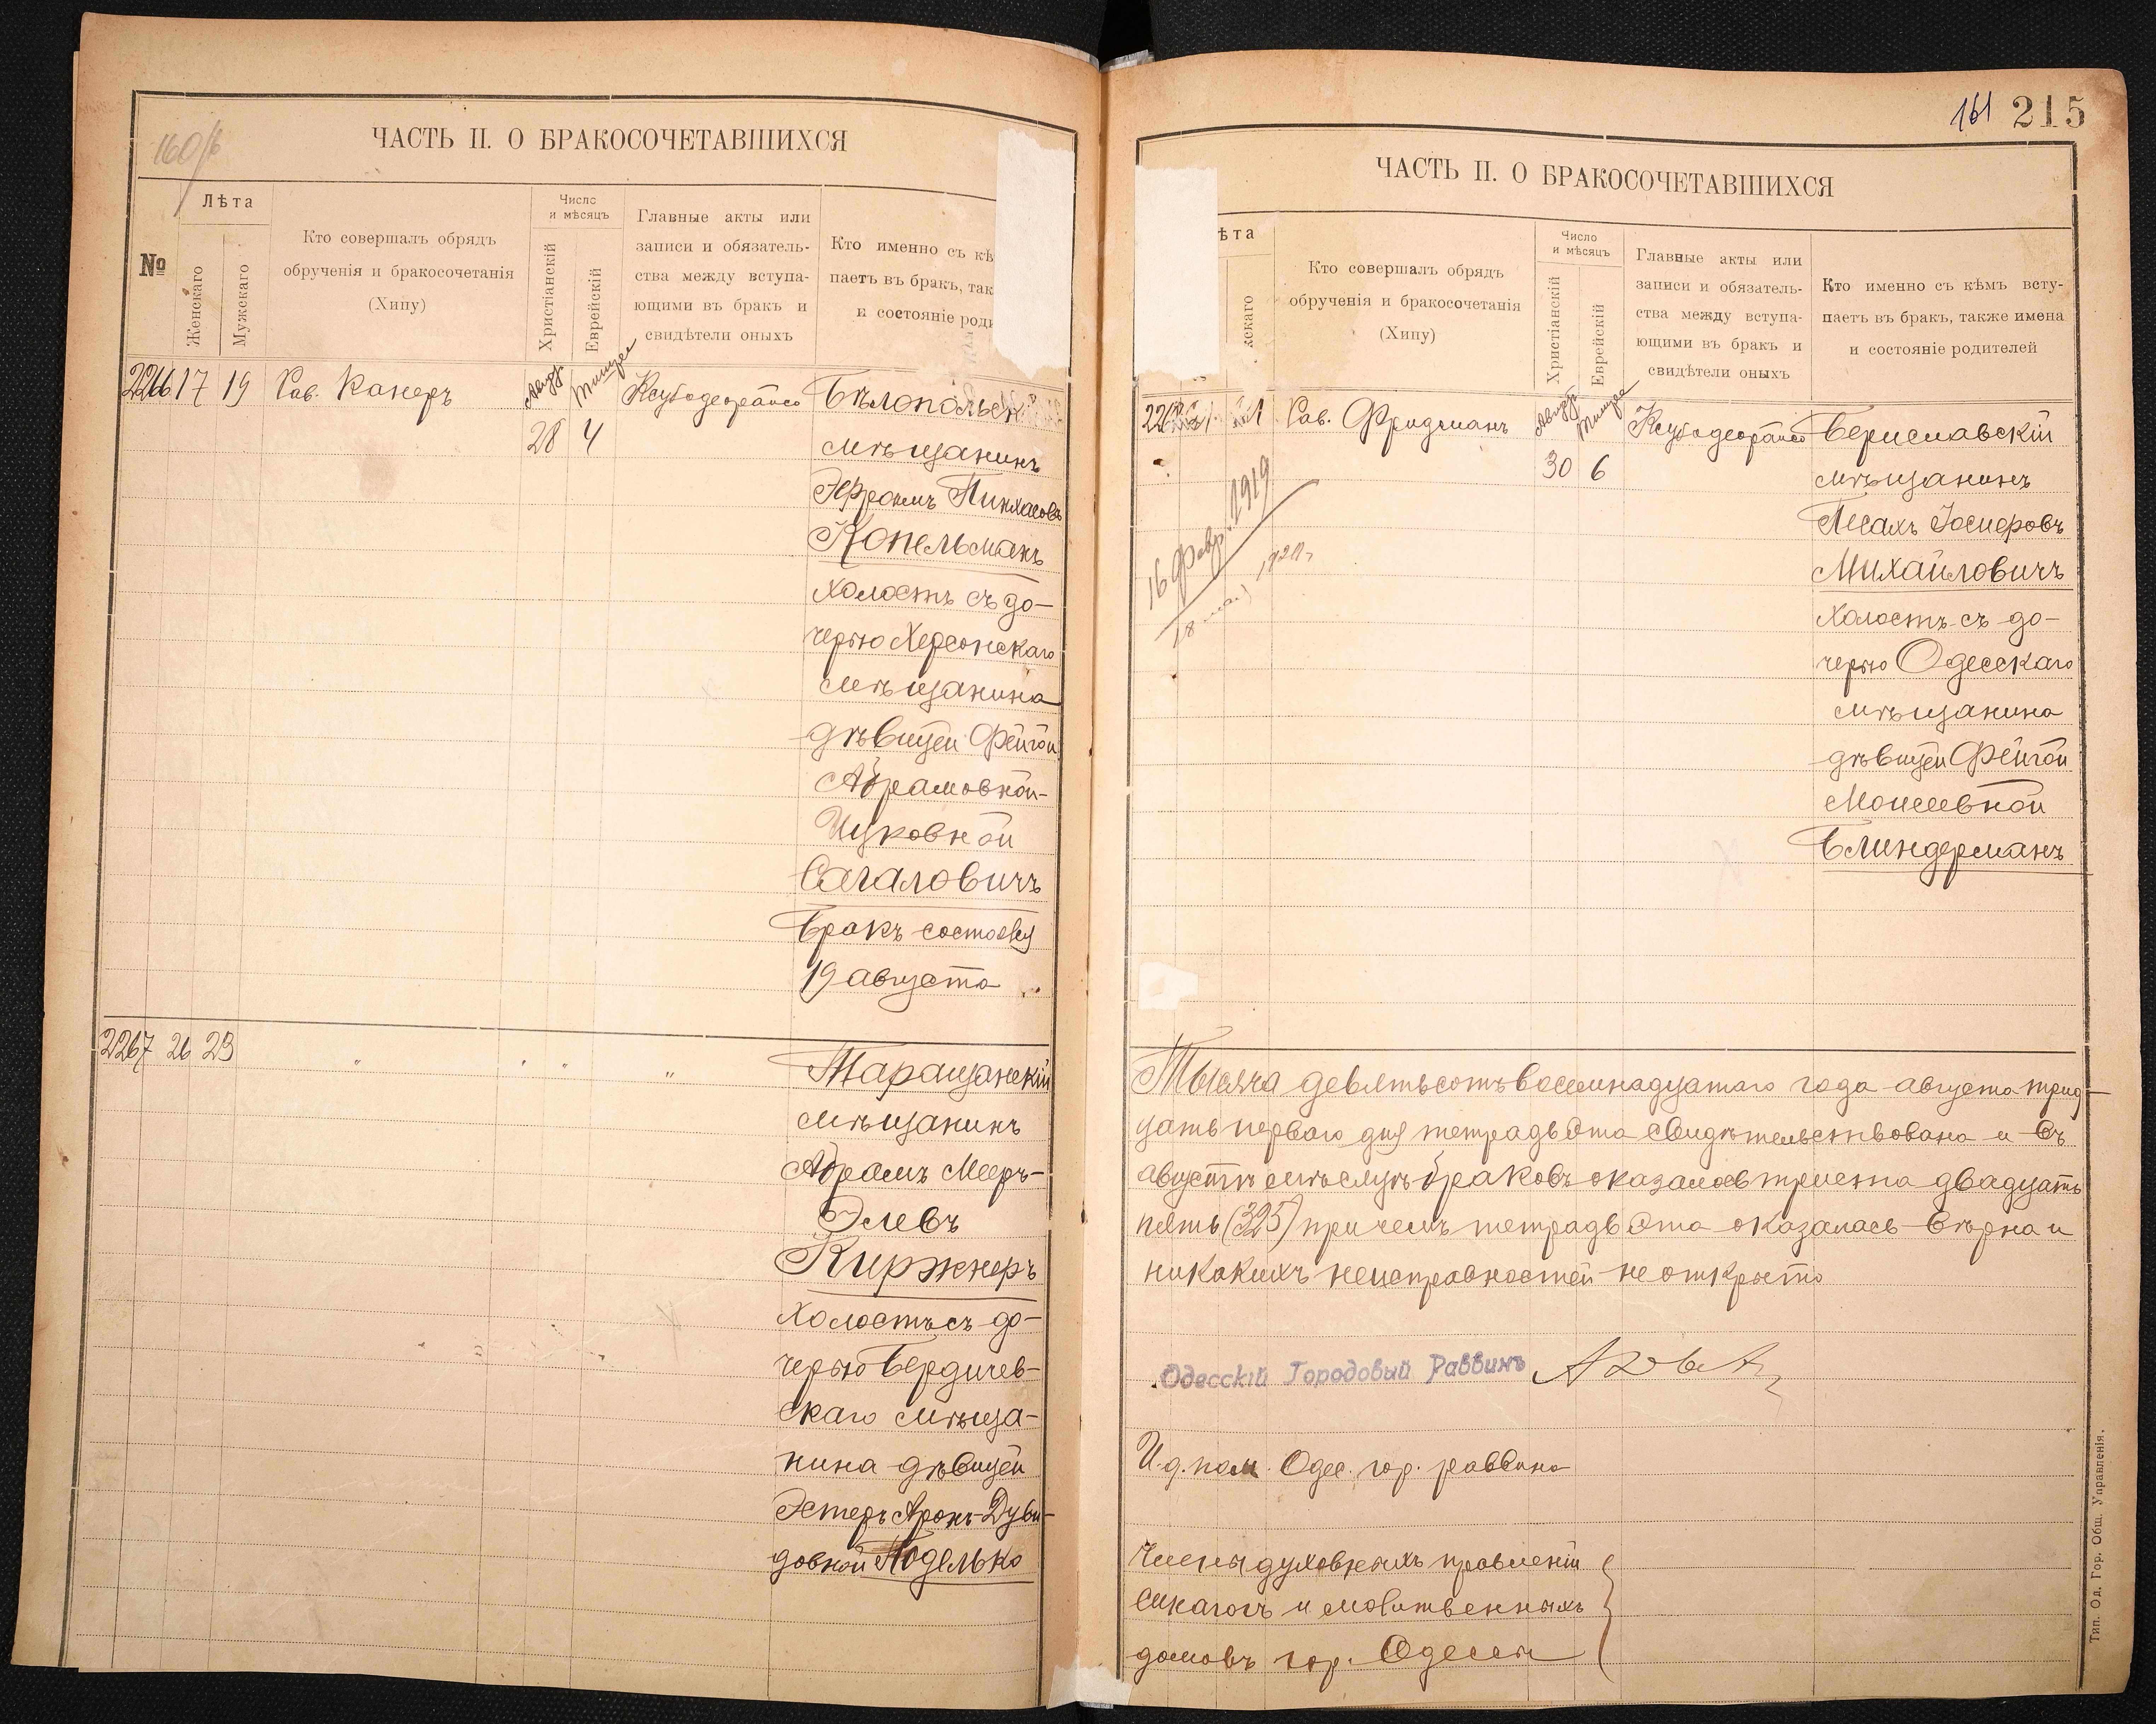 160/б
ЧАСТЬ II. О БРАКОСОЧЕТАВШИХСЯ
№
Лѣта
Женскаго
Мужскаго
Кто совершалъ обрядъ
обрученія и бракосочетанія
(Хипу)
Число
и мѣсяцъ
Христіанскій
Еврейскій
Главные акты или
записи и обязатель-
ства между вступа-
ющими въ бракъ и
свидѣтели оныхъ
Кто именно съ кѣ
паетъ въ бракъ, так
и состояніе роди
2266 17 19 Рав. Канеръ
28 4
Бѣлопольск
мѣщанинъ
Эфроимъ Пинхасовъ
Копельманъ
холостъ съ до-
черью Херсонскаго
мѣщанина
дѣвицей Фейгой
Абрамовной-
Ицковной
Сагаловичъ
Бракъ состоялся
19 августа
2267 26 29 " " " "
Таращанскій
мѣщанинъ
Абрамъ Мееръ-
Элевъ
Киржнеръ
холостъ съ до-
черью Бердичев-
скаго мѣща-
нина дѣвицей
Эстеръ Аронъ-Дуви-
довной Подѣлько
161 215
ЧАСТЬ II. О БРАКОСОЧЕТАВШИХСЯ
ѣта
жскаго
Кто совершалъ обрядъ
обрученія и бракосочетанія
(Хипу)
Число
и мѣсяцъ
Христіанскій
Еврейскій
Главные акты или
записи и обязатель-
ства между вступа-
ющими въ бракъ и
свидѣтели оныхъ
Кто именно съ кѣмъ всту-
паетъ въ бракъ, также имена
и состояніе родителей
Рав. Фридманъ
30 6
Бериславскій
мѣщанинъ
Песахъ Іосифовъ
Михайловичъ
холостъ съ до-
черью Одесскаго
мѣщанина
дѣвицей Фейгой
Моисеевной
Блиндерманъ
16 февр. 1919
Тысяча девятьсотъ восемнадцатаго года августа трид-
цать перваго дня тетрадь эта свидѣтельствована и въ
августѣ мѣсяцѣ браковъ оказалось триста двадцать
пять (325) при чемъ тетрадь эта оказалась вѣрна и
никакихъ неисправностей не открыто
Одесскій Городовый Раввинъ
И.д. пом. Одес. гор. раввина
Члены духовныхъ правленій
синагогъ и молитвенныхъ
домовъ гор. Одессы
Тип. Од. Гор. Общ. Управленія.